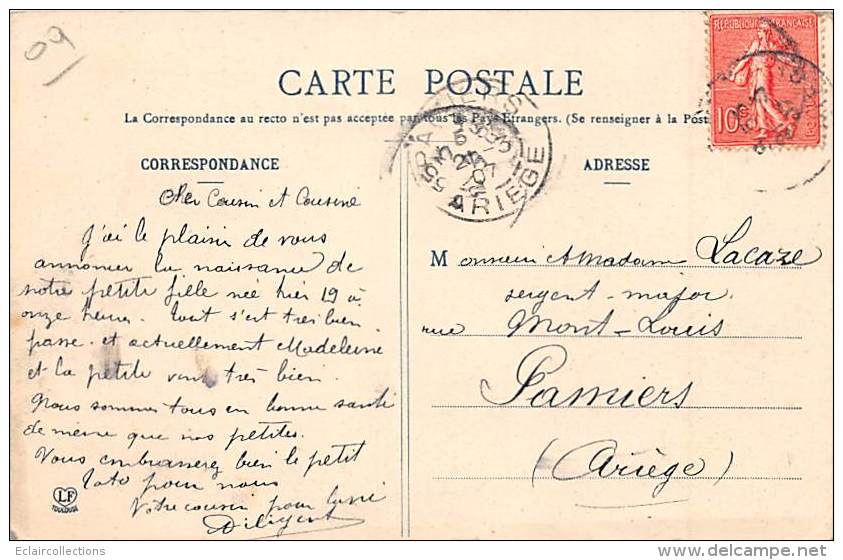 09
RÉPUBLIQUE FRANÇAISE
10c
CARTE POSTALE
La Correspondance au recto n'est pas acceptée par tous les Pays Étrangers. (Se renseigner à la Post
CORRESPONDANCE
ADRESSE
PAMIERS
ARIÈGE
Cher Cousin et Cousine
J'ai le plaisir de vous
annoncer la naissance de
notre petite fille née hier 19 à
onze heures. Tout s'est très bien
passé et actuellement Madeleine
et la petite vont très bien.
Nous sommes tous en bonne santé
de même que nos petites.
Vous embrasserez bien le petit
Toto pour nous
Votre cousin pour la vie
Diligent
Monsieur et Madame Lacaze
sergent-major
rue Mont-Louis
Pamiers
(Ariège)
LF
TOULOUSE
Eclaircollections
delcampe.net